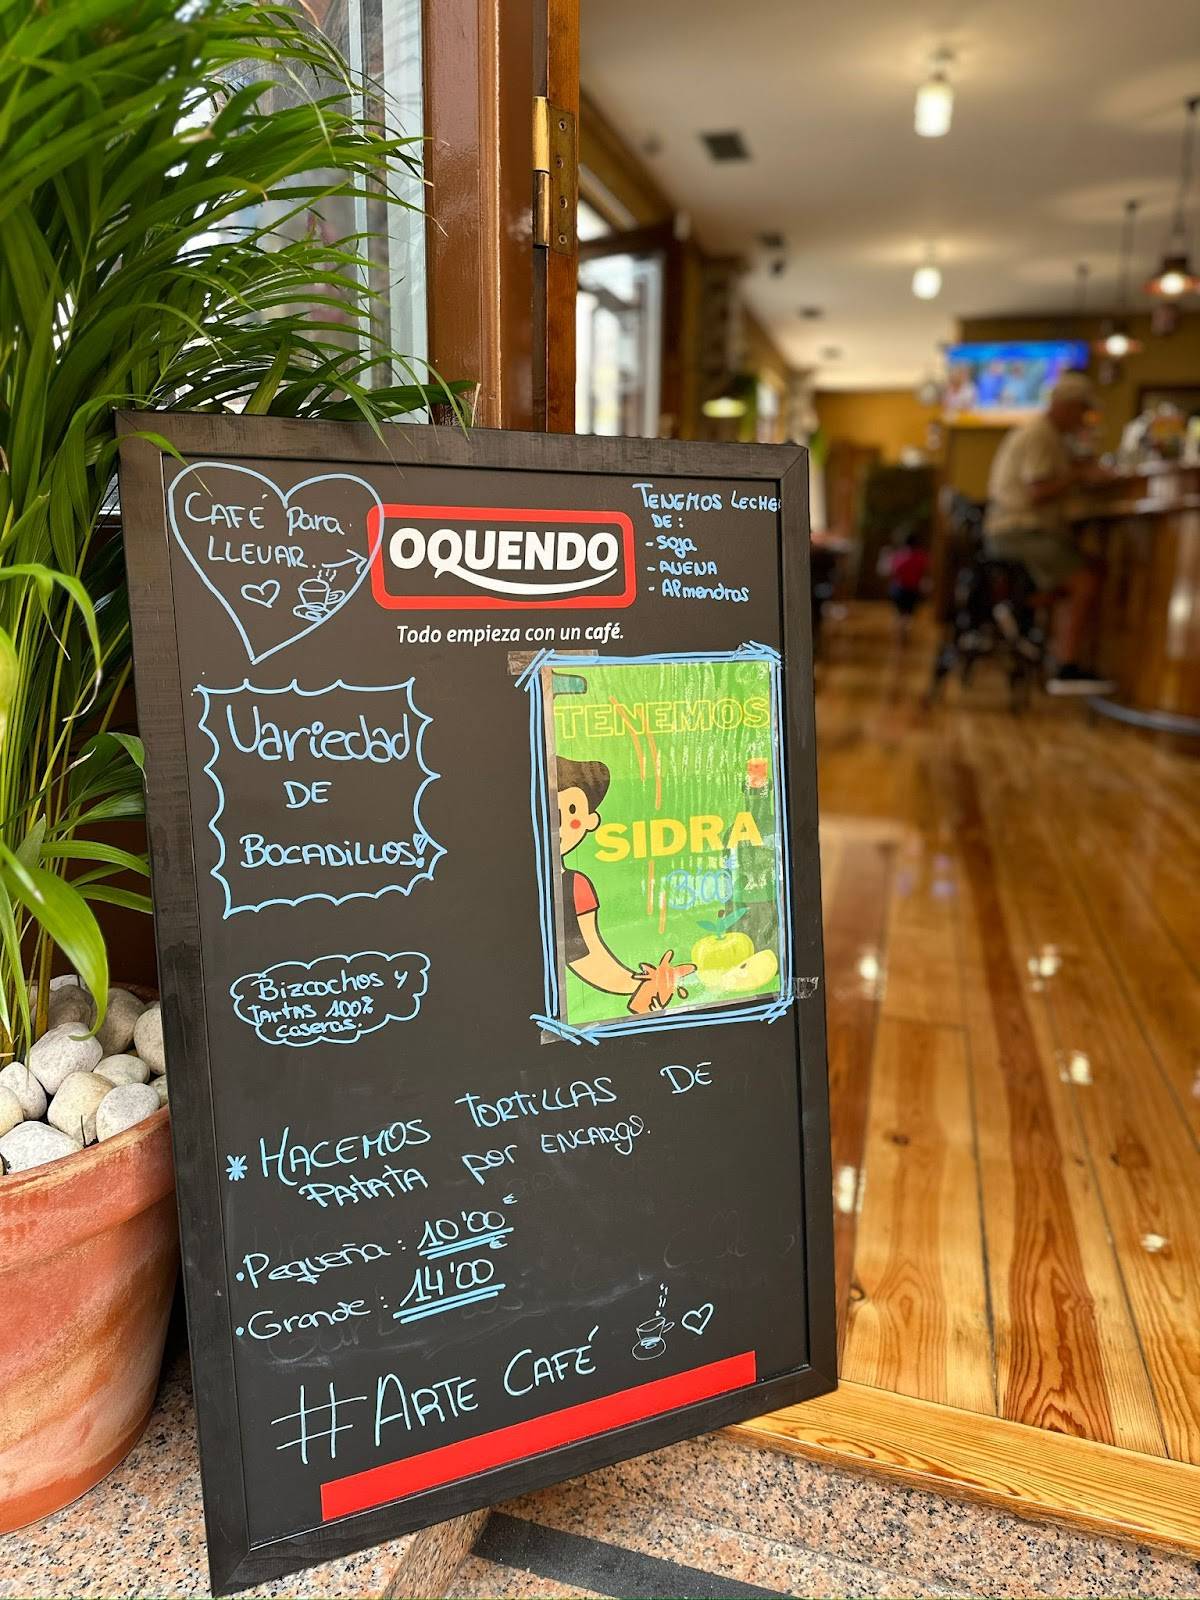 CAFÉ para
LLEVAR.
OQUENDO
Todo empieza con un café.
TENEMOS LECHE
DE:
- Soja
- AVENA
- Almendras
Variedad
DE
BOCADILLOS!
TENEMOS
SIDRA
3'00
Bizcochos y
Tartas 100%
caseras.
* HACEMOS TORTILLAS DE
PATATA por ENCARGO.
• Pequeña: 10'00€
• Grande: 14'00€
#ARTE CAFÉ